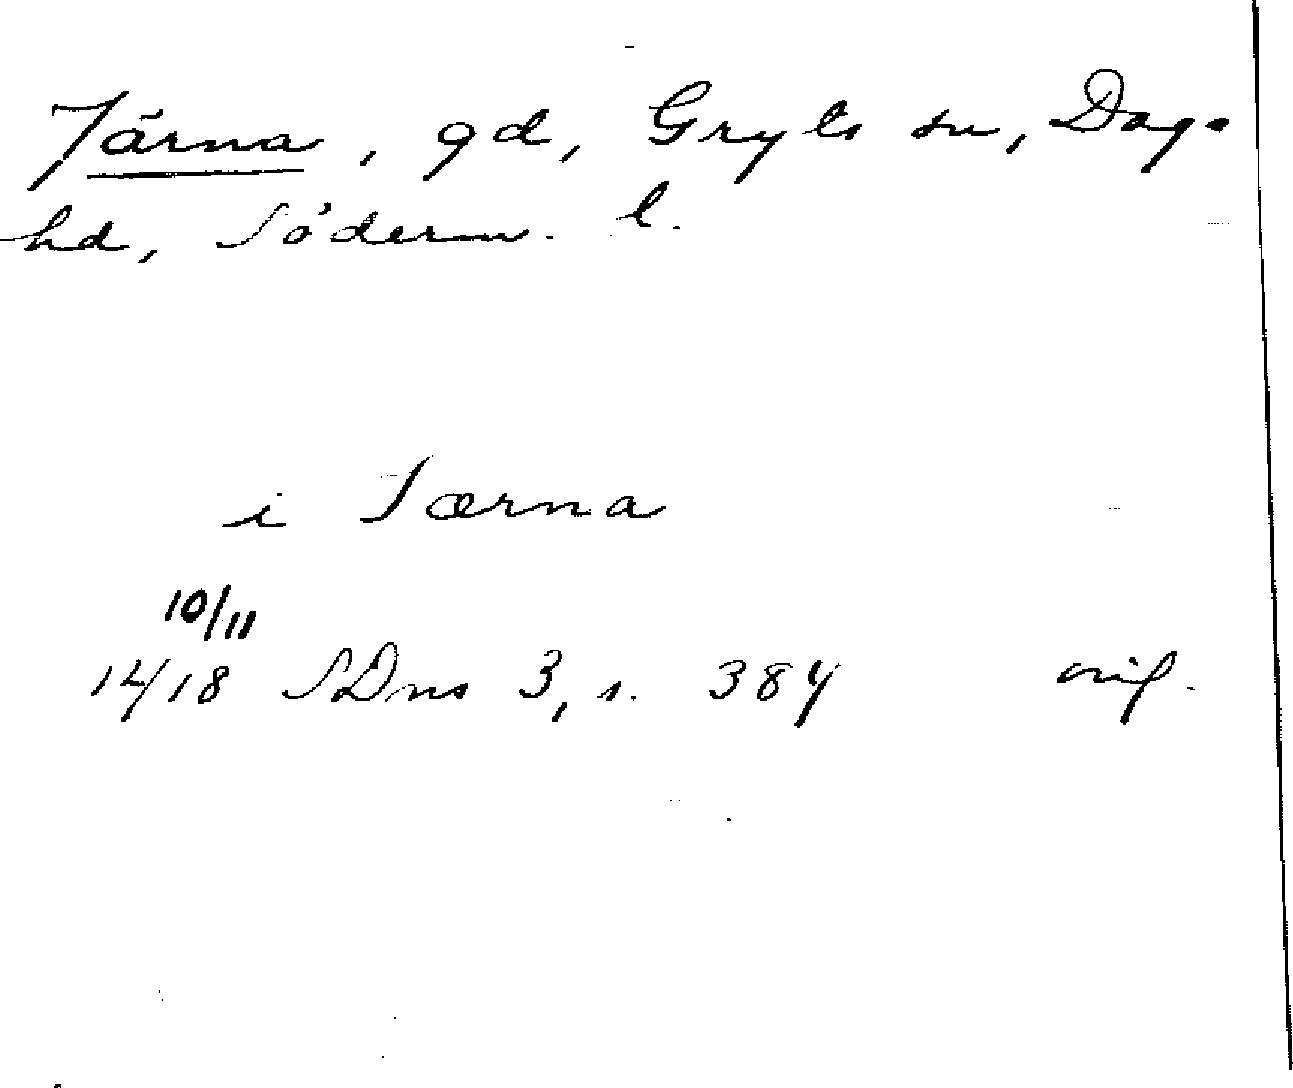 Järna, gd, Gryts sn, Daga
hd, Söderm. l.
i Jærna
10/11
14/18 SDns 3, s. 384 orig.